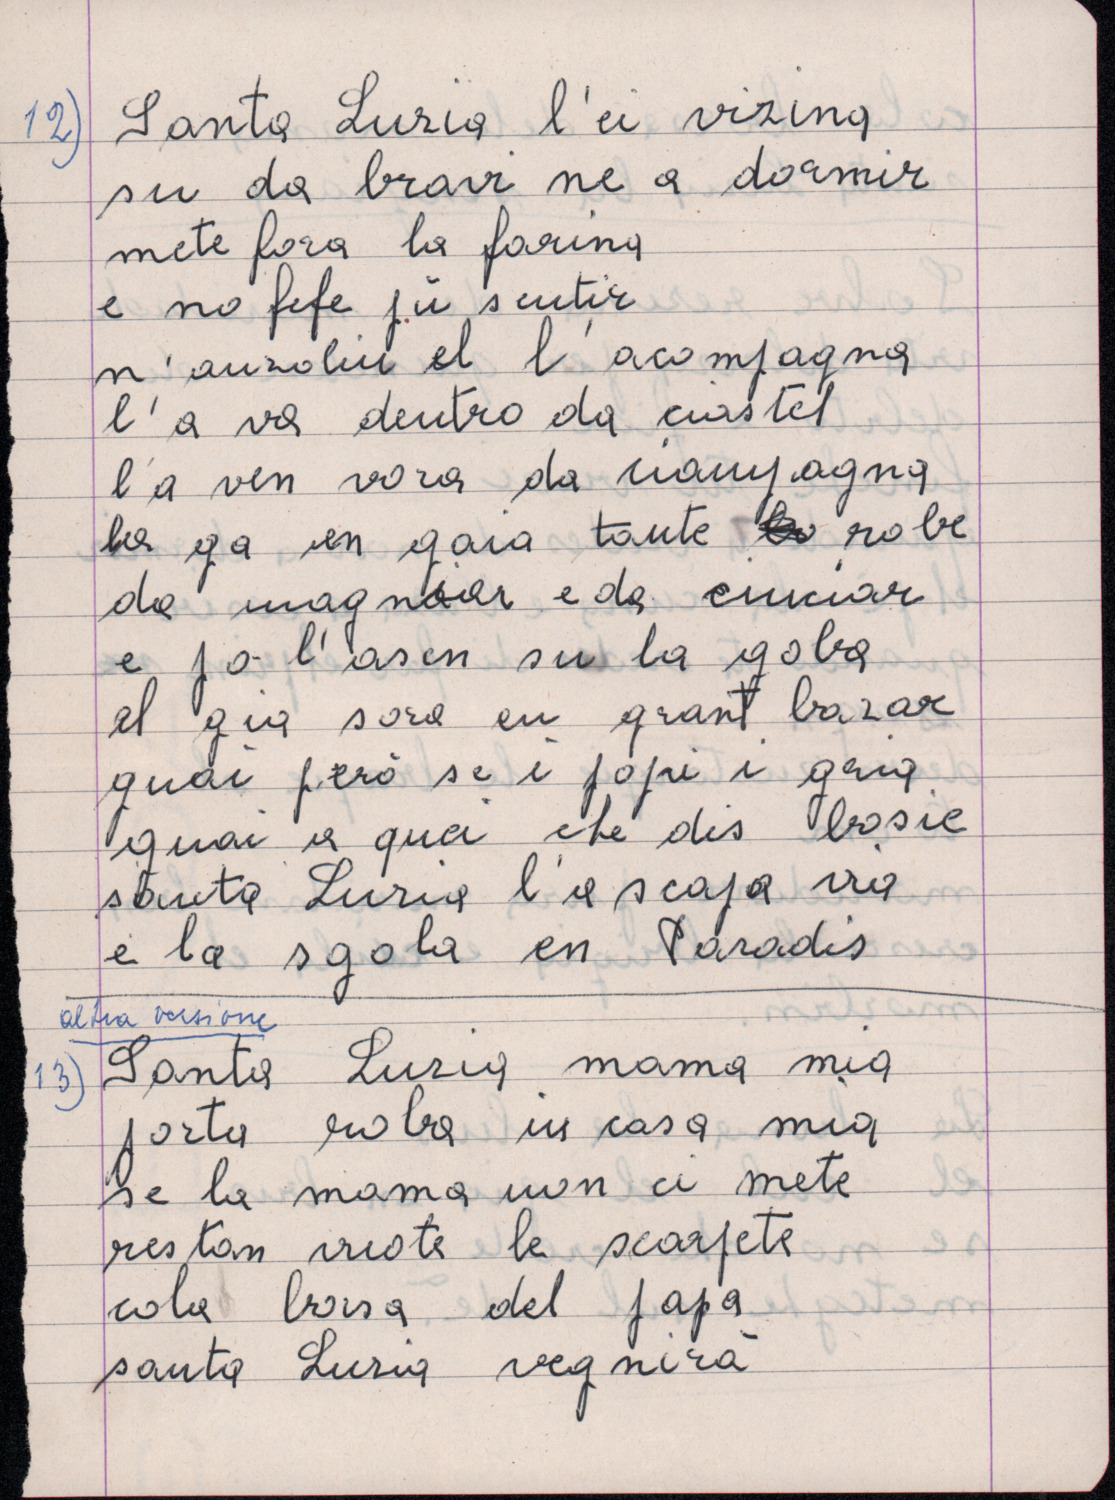 12) Santa Luzia l'ei vizina
su da bravi ne a dormir
mete fora la farina
e no fefe pù sentir
n'anzolin el l'acompagna
l'a va dentro da ciastel
l'a ven vora da ciampagna
la ga en gaia tante robe
da magnàr e da ciuciar
e po l'asen su la goba
el gia sora en grant bazar
guai però se i popi i gria
guai a quei che dis bosie
santa Luzia l'a scapa via
e la sgola en Paradis
altra versione
13) Santa Luzia mama mia
porta roba in casa mia
se la mama non ci mete
restan vuote le scarpete
cola borsa del papa
santa Luzia vegnirà